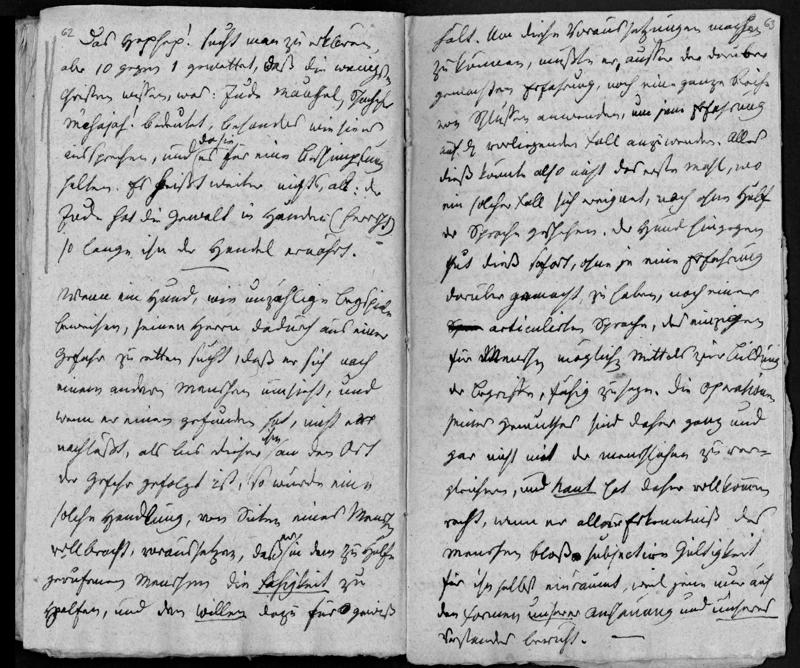 62
Das Hephep! sucht man zu erklären,
aber 10 gegen 1 gewettet, daß die wenigsten
Christen wissen, was: Jude Mauschel,
bedeutet, besonders wie sie es
aussprechen, und daß sie es für eine Beschimpfung
halten. Es heißt weiter nichts, als: der
Jude hat die Gewalt in Händen
so lange ihn der Handel ernährt.
Wenn ein Hund, wie unzählige Beyspiele
beweisen, seinen Herrn dadurch aus einer
Gefahr zu retten sucht, daß er sich nach
einem andern Menschen umsieht, und
wenn er einen gefunden hat, nicht eher
nachläßt, als bis dieser ihm an den Ort
der Gefahr gefolgt ist, so würde eine
solche Handlung, von Seiten eines Menschen
vollbracht, voraussetzen, daß er in dem zu Hülfe
gerufenen Menschen die Fähigkeit zu
helfen, und den Willen dazu für gewiß
63
hält. Um diese Voraussetzungen machen
zu können, müßte er, außer der darüber
gemachten Erfahrung, noch eine ganze Reihe
von Schlüssen anwenden, um jene Erfahrung
auf den vorliegenden Fall anzuwenden. Alles
dieß könnte also nicht das erste Mahl, wo
ein solcher Fall sich ereignet, noch ohne Hülfe
der Sprache geschehen. Der Hund hingegen
thut dieß sofort, ohne je eine Erfahrung
darüber gemacht zu haben, noch einer
articulirten Sprache, des einzigen
für Menschen möglichen Mittels zur Bildung
der Begriffe, fähig zu seyn. Die Operationen
seines Gemüthes sind daher ganz und
gar nicht mit der menschlichen zu ver-
gleichen, und Kant hat daher vollkommen
recht, wenn er aller Erkenntniß des
Menschen bloß subjective Gültigkeit
für ihn selbst einräumt, weil jene nur auf
den Formen unserer Anschauung und unseres
Verstandes beruht.